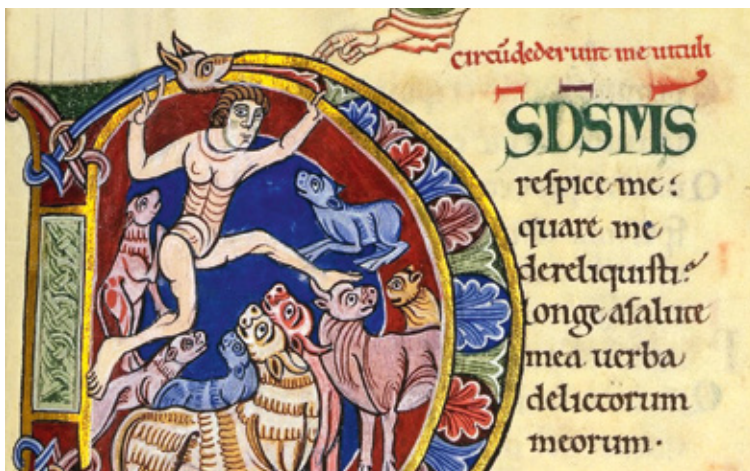 circū dederunt me uituli
SDSMS
respice me:
quare me
dereliquisti:
longe asalute
mea uerba
delictorum
meorum·